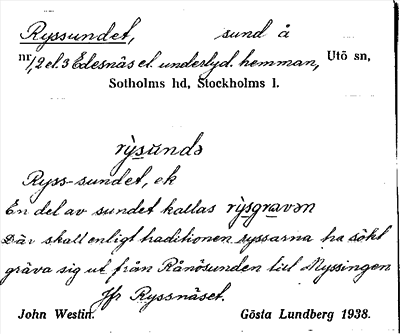 Ryssundet, sund å
nr 1,2 el. 3 Edesnäs el. underlyd. hemman, Utö sn,
Sotholms hd, Stockholms l.
rỳsùndə
Ryss-sundet, ek
En del av sundet kallas rỳsgravən
Där skall enligt traditionen ryssarna ha sökt
gräva sig ut från Rånösunden till Myssingen
Jfr Ryssnäset.
John Westin. Gösta Lundberg 1938.